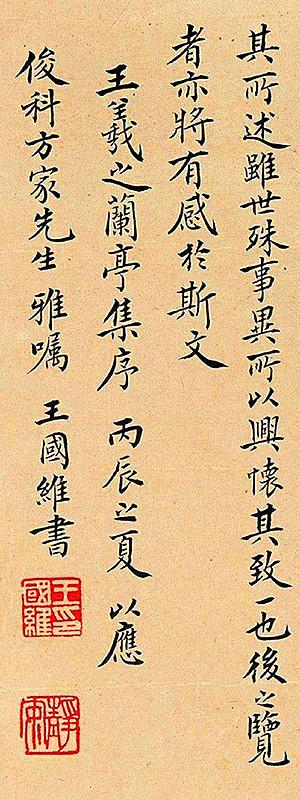 其所述雖世殊事異所以興懷其致一也後之覽
者亦將有感於斯文
王羲之蘭亭集序 丙辰之夏 以應
俊科方家先生雅嘱 王國維書
王國維印
靜安